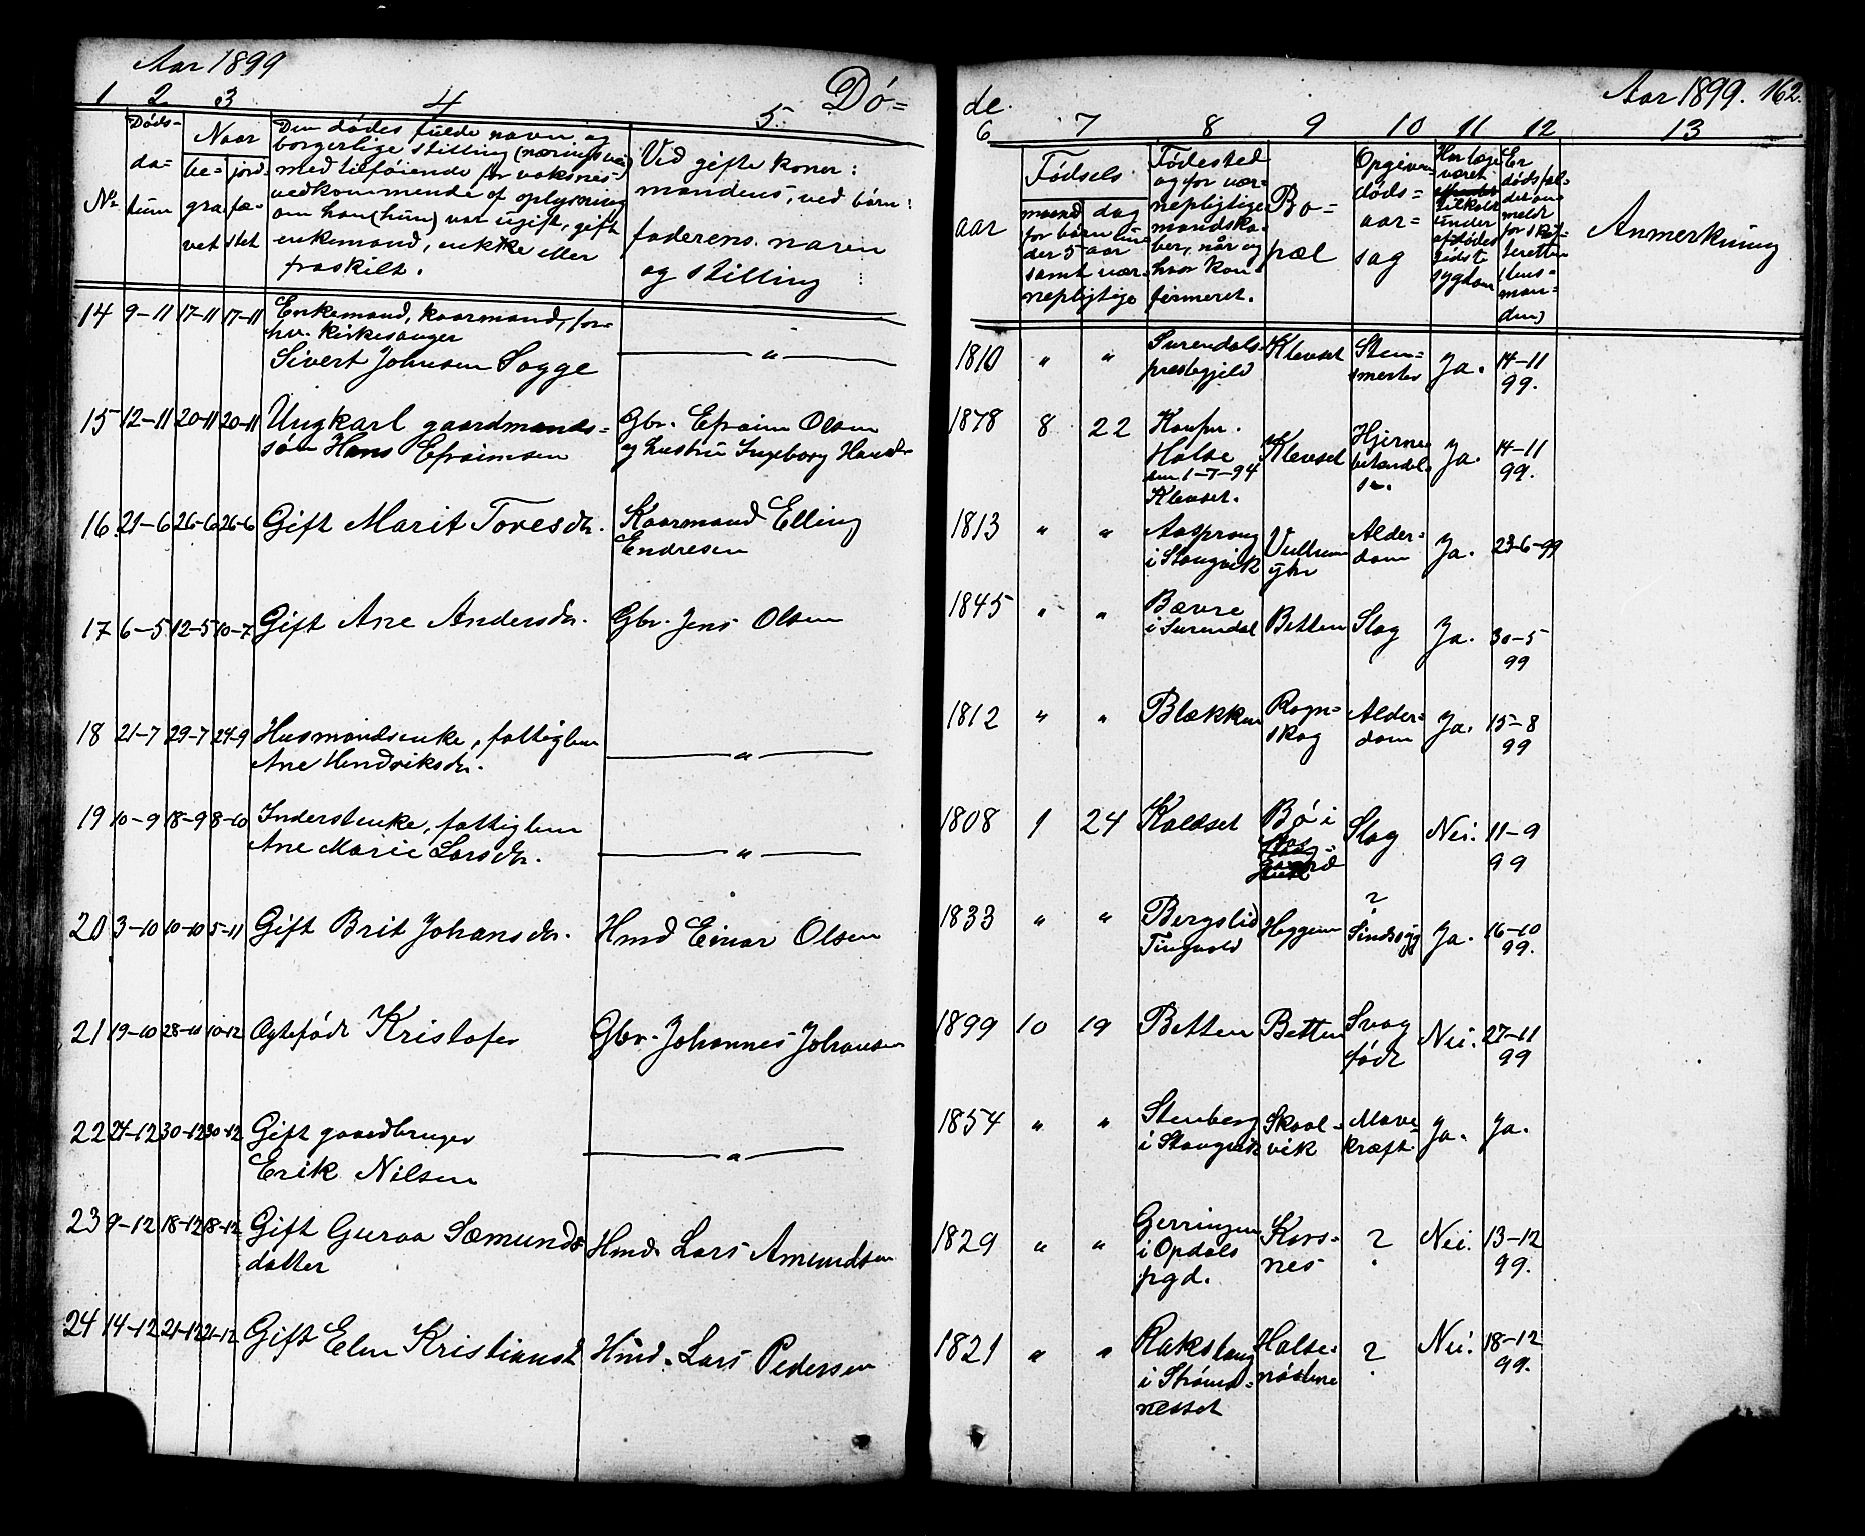 Aar 1899
Dø=
1 2 3 4 5.
Nr.
Døds-
da-
tum
Naar
be-
gra
vet
jord
fæ-
stet
Den dødes fulde navn og
borgerlige stilling (næringsvei)
med tilføiende (for voksnes
vedkommende) af oplysning
om han (hun) var ugift, gift
enkemand, enkke eller
fraskilt.
Ved gifte koner:
mandens, ved børn:
faderens navn
og stilling
14 9-11 17-11 17-11 Enkemand, kaarmand, for-
hv. kirkesanger
Sivert Johnsen Sogge — " —
15 12-11 20-11 20-11 Ungkarl gaardmands=
søn Hans Efraimsen
Gbr. Efraim Olsen
og hustru Ingeborg Hansdr
16. 21-6 26-6 26-6 Gift Marit Toresdr.
Kaarmand Elling
Endresen
17 6-5 12-5 10-7 Gift Ane Andersdr. Gbr. Jens Olsen
18 21-7 29-7 24-9 Husmandsenke, fattiglem
Ane Hendriksdr. — " —
19 10-9 18-9 8-10 Inderstenke, fattiglem
Ane Marie Larsdr. — " —
20 3-10 10-10 5-11 Gift Brit Johansdr. Hmd Einar Olsen
21 19-10 28-11 10-12 Ogtefødt Kristofer Gbr. Johannes Johansen
22 24-12 30-12 30-12 Gift gaardbruger
Erik Nilsen — " —
23 9-12 18-12 18-12 Gift Guroa Sæmunds
datter
Hmd. Lars Amundsen
24 14-12 21-12 21-12 Gift Elen Kristiansd Hmd. Lars Pedersen
Aar 1899. 162.
de.
6 7 8 9 10 11 12 13
aar
Fødsels
maaned
dag
for børn un
der 5 aar
samt vær-
nepligtige
Fødested
og for vær-
nepligtige
mandska-
ber, når og
hvor kon-
firmeret.
Bo=
pæl
Opgiven
døds=
aar=
sag
Har læge
været
tilkaldt
under
afdødes
sidste
sygdom
Er
dødsfal-
det an-
meldt
for skif-
teretten
(lens-
man-
den)
Anmerkning
1810 " " Surendals-
præstegjeld
Klevset
Sten=
smerter
Ja. 14-11
99.
1878 8 22
Konfir.
Halse
den 1-7-94
Klevset.
Klevset
Hjerne
betændel
se.
Ja. 14-11
99.
1813 " " Aasprong
i Stangvik
Vullum
Alder=
dom
Ja. 23-6-99
1845 " " Bævre
i Surendal
Betten Slag Ja. 30-5
99
1812 " " Blækken
Rogn=
skog
Alder=
dom
Ja. 15-8
99
1808 1 24 Kaldset Bø i
Slag Nei. 11-9
99
1833 " " Bergslid
Tingvold
Heggem
?
Sindssyg
Ja. 16-10
99.
1899 10 19 Betten Betten Svag
født
Nei. 27-11
99
1854 " " Stenberg
i Stangvik
Skaal=
vik
Mave-
kræft.
Ja. Ja.
1829 " " Gerringen
i Opdals
pgd.
Kors=
nes
? Nei. 13-12
99.
1821 " "
i Strøms=
nesset
Halse-
? Nei. 18-12
99.